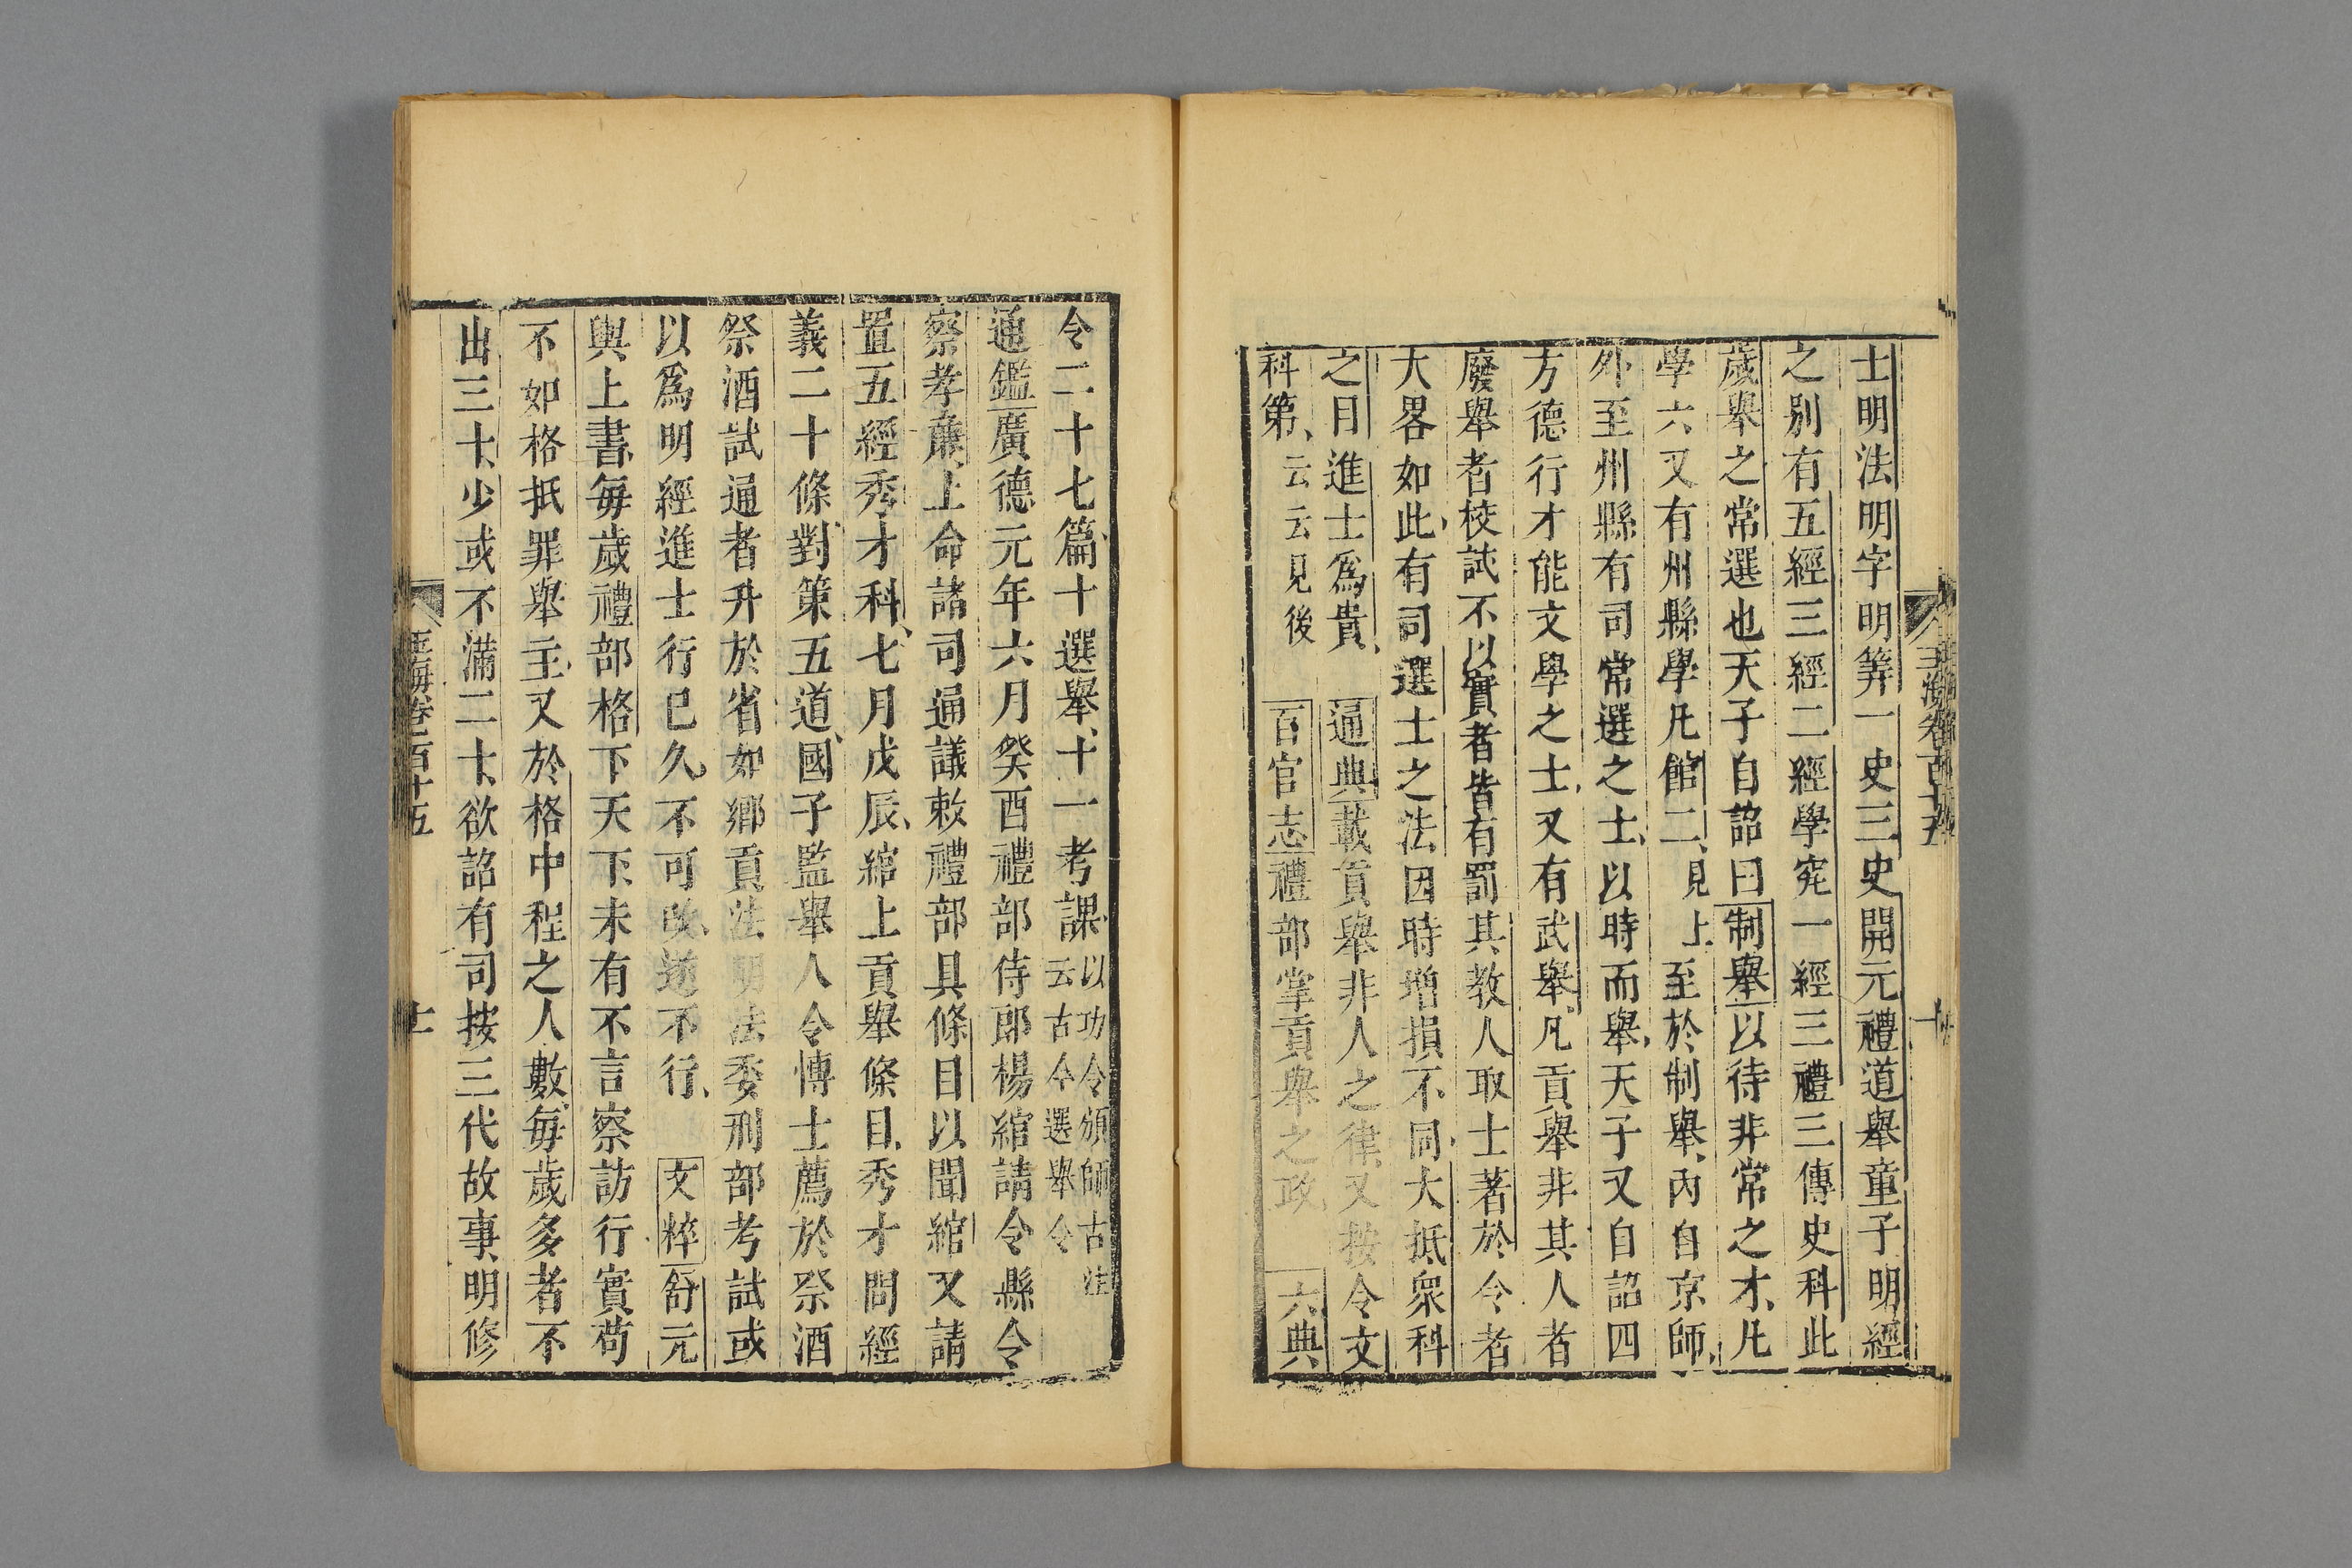 士明法明字明筭一史三史開元禮道舉童子明經
之別有五經三經二經學究一經三禮三傳史科此
歲舉之常選也天子自詔曰制舉以待非常之才凡
學六又有州縣學凡館二見上至於制舉內自京師
外至州縣有司常選之士以時而舉天子又自詔四
方德行才能文學之士又有武舉凡貢舉非其人者
廢舉者校試不以實者皆有罰其教人取士著於令者
大畧如此有司選士之法因時增損不同大抵衆科
之目進士爲貴 通典載貢舉非人之律又按令文
科第云云見後 百官志禮部掌貢舉之政 六典
令二十七篇十選舉十一考課以功令頒師古注
云古今選舉令
通鑑廣德元年六月癸酉禮部侍郎楊綰請令縣令
察孝廉上命諸司通議敕禮部具條目以聞綰又請
置五經秀才科七月戊辰綰上貢舉條目秀才問經
義二十條對策五道國子監舉人令博士薦於祭酒
祭酒試通者升於省如鄉貢法明法委刑部考試或
以爲明經進士行已久不可改遂不行 文粹舒元
輿上書每歲禮部格下天下未有不言察訪行實苟
不如格抵罪舉主又於格中程之人數每歲多者不
出三十少或不滿二十欲詔有司按三代故事明修
玉海卷一百十五